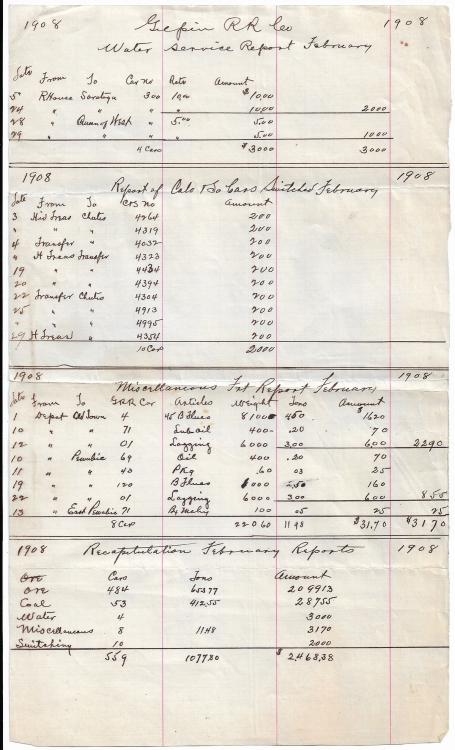 1908 Gilpin R R Co 1908
Water Service Report February
Date From To Car no Rate Amount
5 R House Saratoga 300 10.00 $10.00
24 " " " " 10.00 20.00
28 " Queen of West " 5.00 5.00
29 " " " " 5.00 10.00
4 Cars $30.00 30.00
1908 Report of Co Cars Switched February 1908
Date From To C&S No Amount
3 Hid Treas Chutes 4264 200
" " " 4319 200
4 Transfer " 4032 200
" H Treas Transfer 4323 200
19 " " 4434 200
20 " " 4394 200
22 Transfer Chutes 4304 200
25 " " 4913 200
" " " 4995 200
29 H Treas " 4354 200
10 Cars 2000
1908 Miscellaneous Frt Report February 1908
Date From To G R R Car Articles Weight Tons Amount
1 Depot Old Town 4 45 B Flues 8100 $1620
10 " " 71 Lub oil 400 .20 70
12 " " 01 Lagging 6000 3.00 600 2290
10 " Pewabic 69 Oil 400 .20 70
11 " " 43 Pkg .60 03 25
19 " " 120 B Flues 1000 .50 160
22 " " 01 Lagging 6000 3.00 600 855
13 " East Pewabic 71 100 .05 25 25
8 Cars 22060 11.48 $31.70 $31.70
1908 Recapitulation February Reports 1908
Ore Cars Tons Amount
Ore 484 65377 209913
Coal 53 41255 28755
Water 4 3000
Miscellaneous 8 11.48 3170
Switching 10 2000
559 107780 $2,468.38